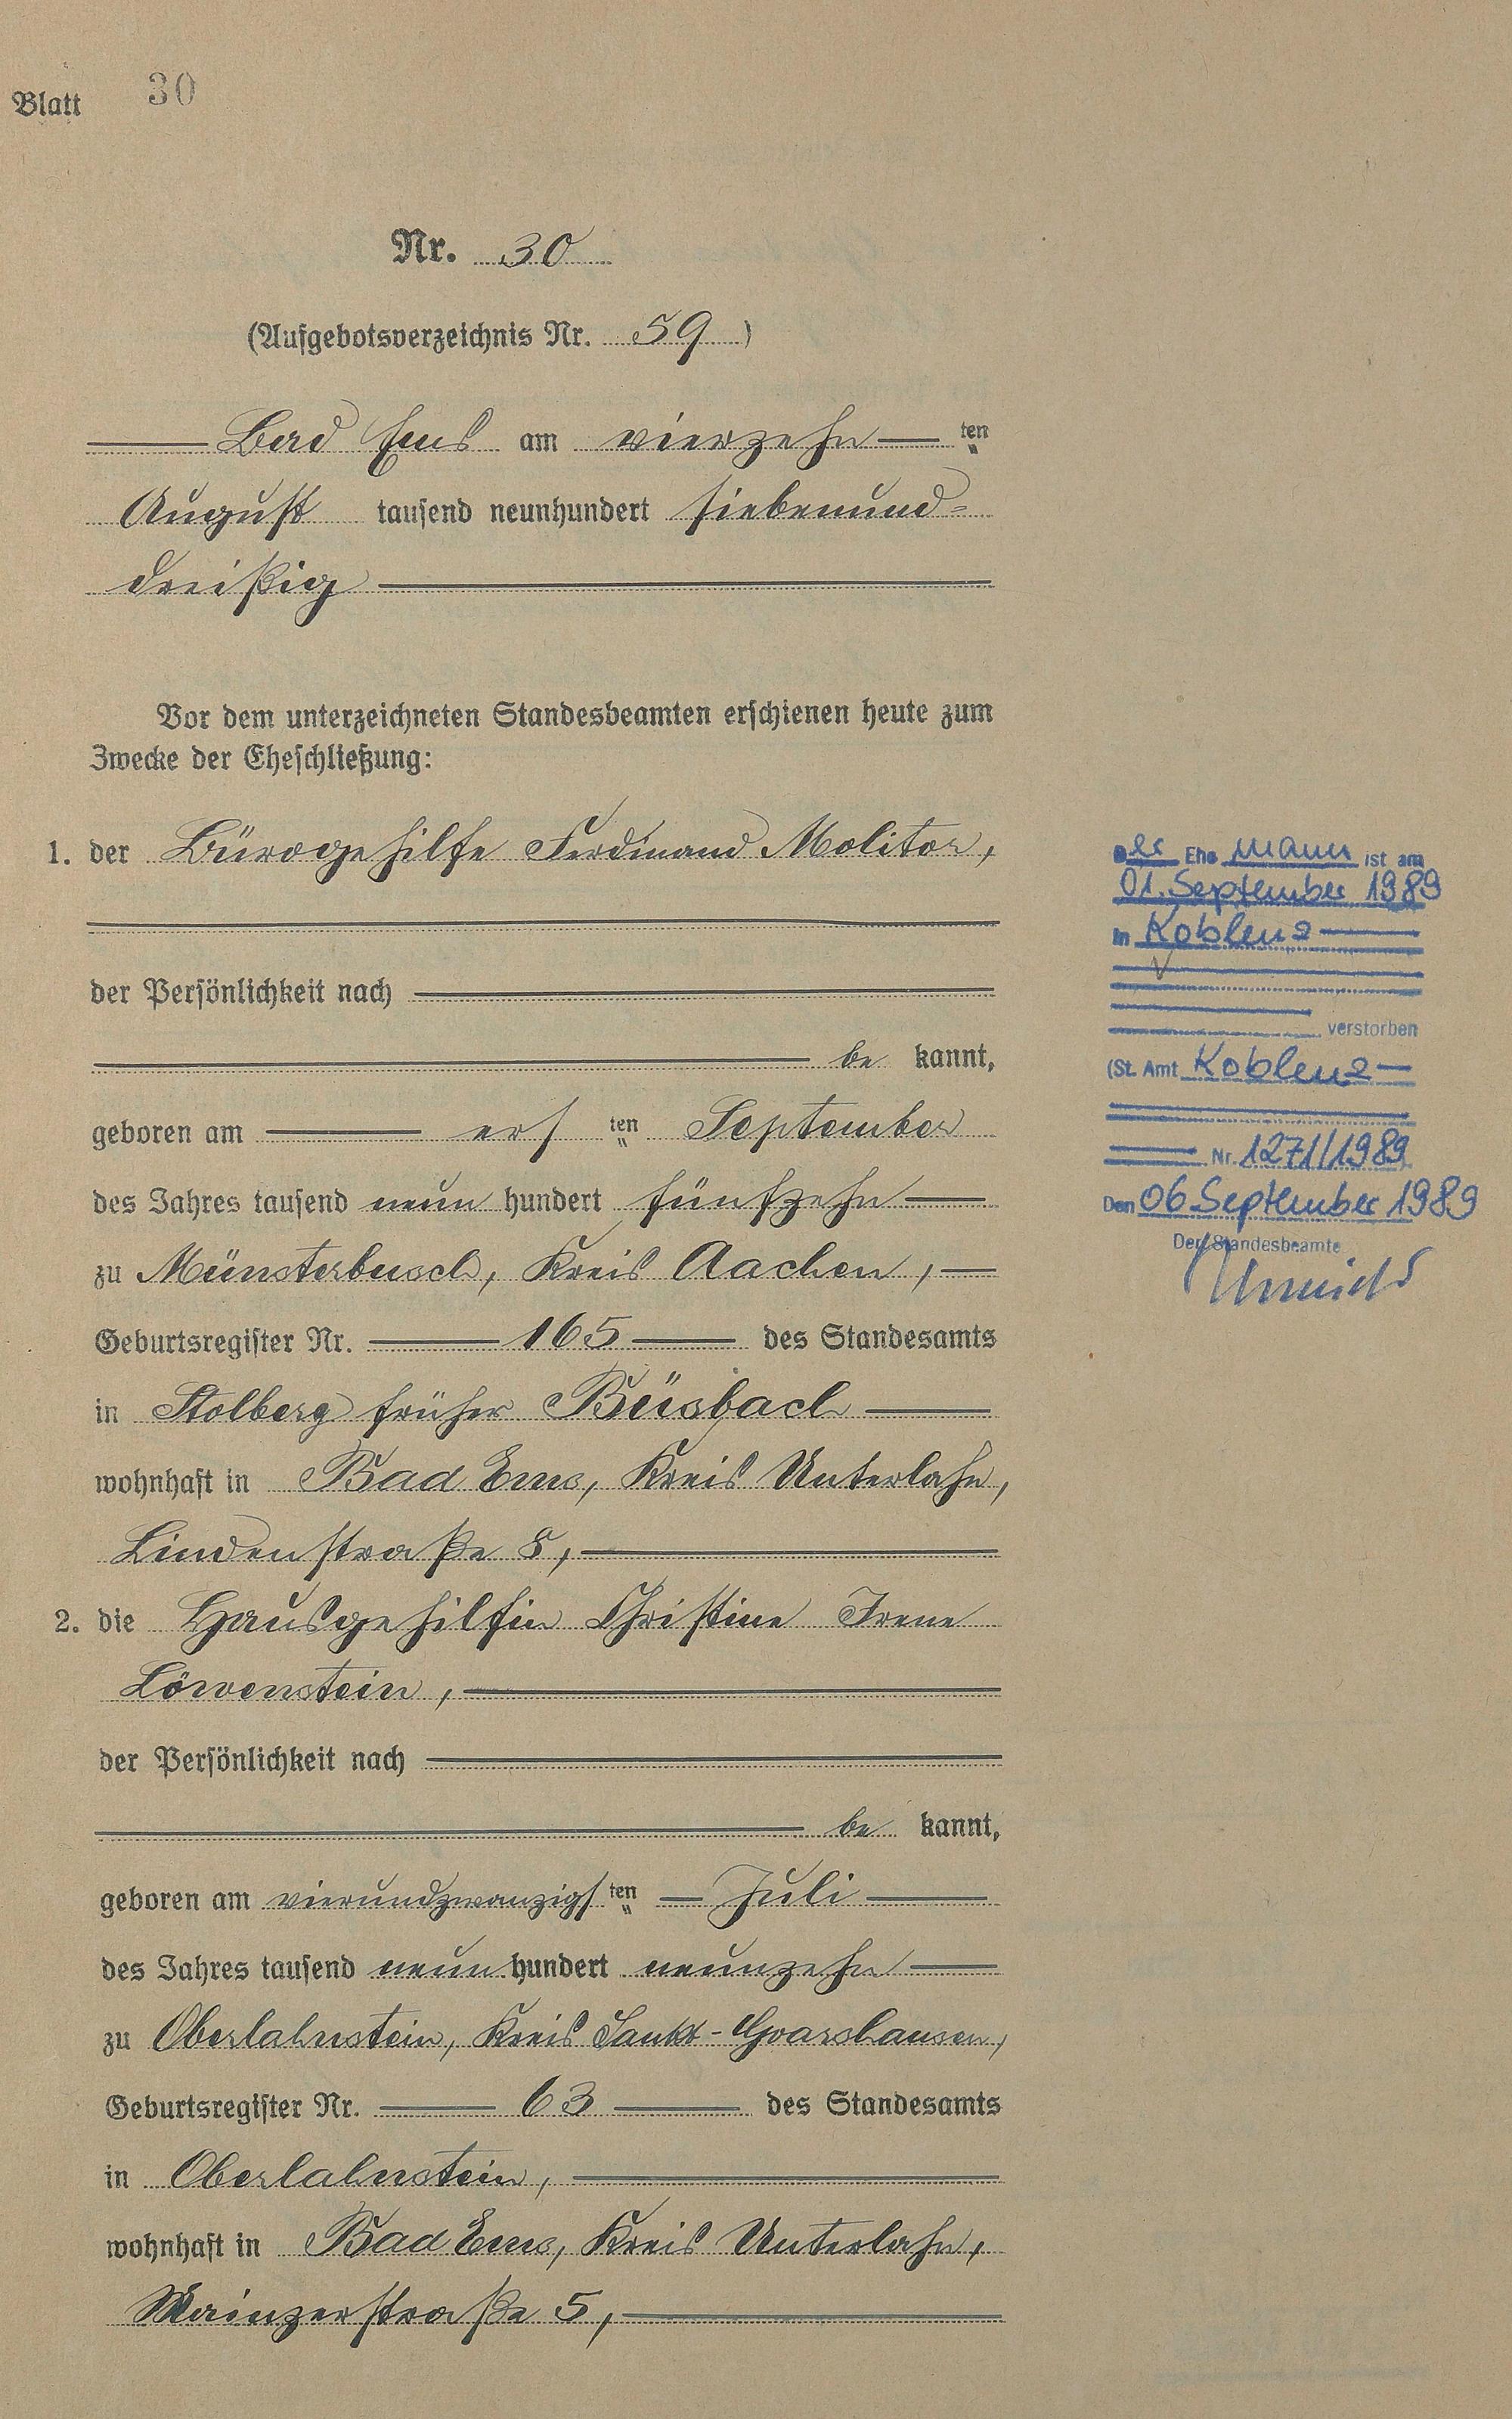 Blatt 30
Nr. 30
(Aufgebotsverzeichnis Nr. 59)
Bad Ems am vierzehn ten
August tausend neunhundert siebenund-
dreißig
Vor dem unterzeichneten Standesbeamten erschienen heute zum
Zwecke der Eheschließung:
1. der Bürogehilfe Ferdinand Molitor,
der Persönlichkeit nach
be kannt,
geboren am ers ten September
des Jahres tausend neun hundert fünfzehn
zu Münsterbusch, Kreis Aachen,
Geburtsregister Nr. 165 des Standesamts
in Stolberg früher Büsbach
wohnhaft in Bad Ems, Kreis Unterlahn,
Lindenstraße 8,
2. die Hausgehilfin Christine Irene
Löwenstein,
der Persönlichkeit nach
be kannt,
geboren am vierundzwanzigs ten Juli
des Jahres tausend neun hundert neunzehn
zu Oberlahnstein, Kreis Sankt-Goarshausen,
Geburtsregister Nr. 63 des Standesamts
in Oberlahnstein,
wohnhaft in Bad Ems, Kreis Unterlahn,
Mainzerstraße 5,
Der Ehe mann ist am
01. September 1989
in Koblenz
verstorben
(St. Amt Koblenz
Nr. 1271/1989
Den 06. September 1989
Der Standesbeamte